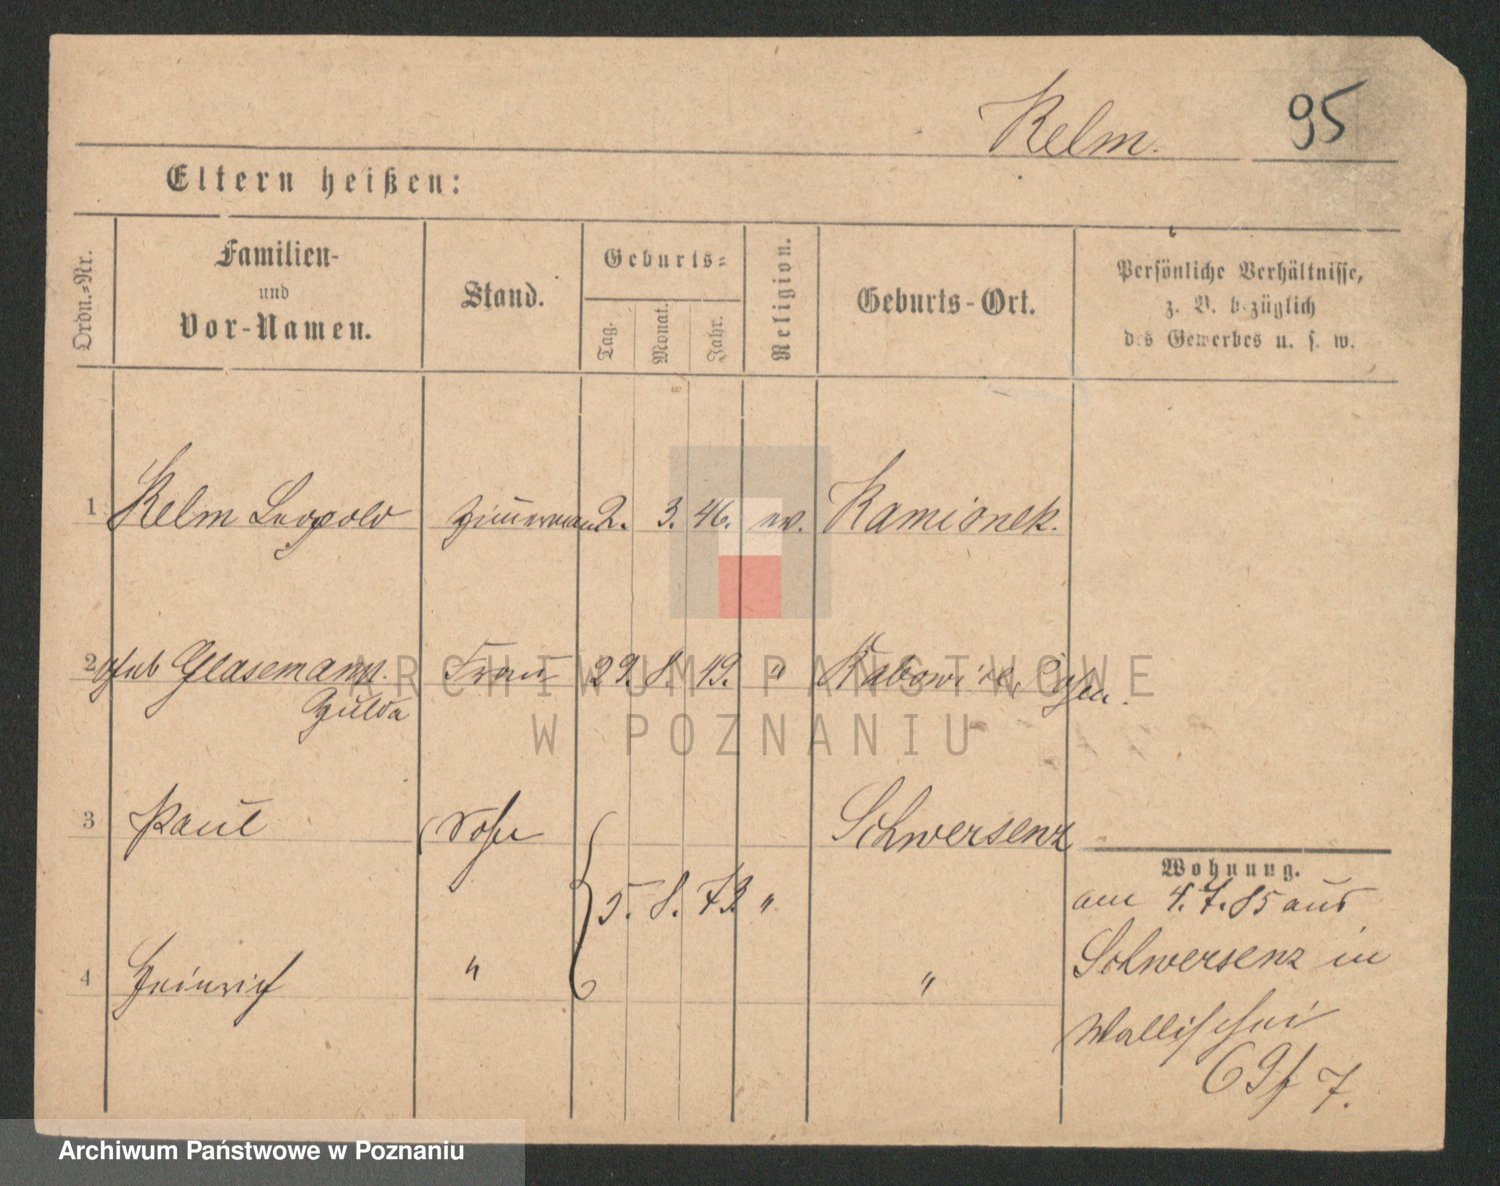 Relm. 95
Eltern heißen:
Ordn.-Nr.
Familien-
und
Vor-Namen.
Stand.
Geburts-
Tag.
Monat.
Jahr.
Religion.
Geburts-Ort.
Persönliche Verhältnisse,
z. B. bezüglich
des Gewerbes u. s. w.
1 Relm Leopold Zimmerman 2. 3. 46. ev. Kamionek.
2 geb Glasemann. Frau 29. 8. 49. "
Hulda
3 Paul Sohn Schwersenz
5. 8. 73 "
4 Heinrich " "
Wohnung.
am 4. 7. 85 aus
Schwersenz in
Wallischei
69/7.
ARCHIWUM PAŃSTWOWE
W POZNANIU
Archiwum Państwowe w Poznaniu